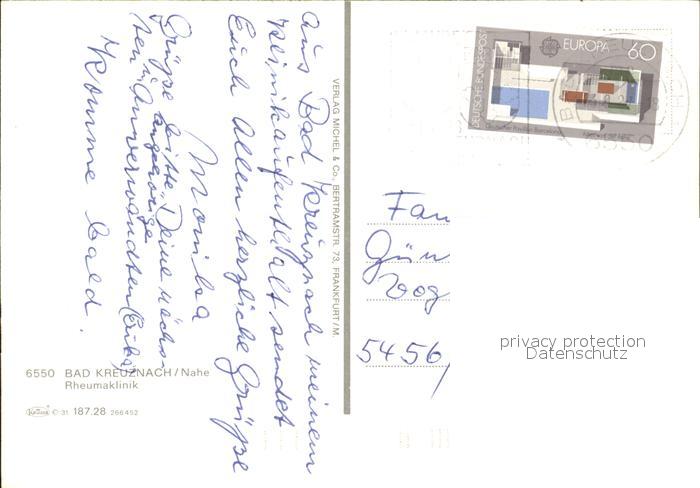 Aus Bad Kreuznach meinem
Klinikaufenthalt sendet
Euch allen herzliche Grüße
Monika
Grüße bitte Deine nächs-
ten Angehörige
u. Anverwandten
Komme bald.
VERLAG MICHEL & Co., BERTRAMSTR. 73, FRANKFURT/M.
6550 BAD KREUZNACH/Nahe
Rheumaklinik
Krüger © 31 187.28 266452
DEUTSCHE BUNDESPOST
EUROPA 60
Deutscher Pavillon Barcelona
6550
Fam
Gün
Vog
5456
privacy protection
Datenschutz